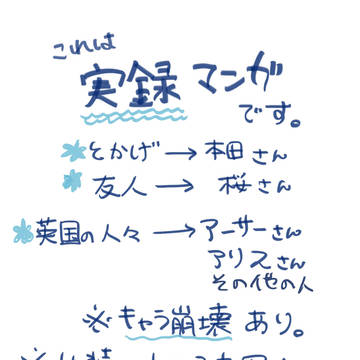 これは
実録マンガ
です。
とかげ→本田さん
友人→桜さん
英国の人々→アーサーさん
アリスさん
その他の人
※キャラ崩壊あり。